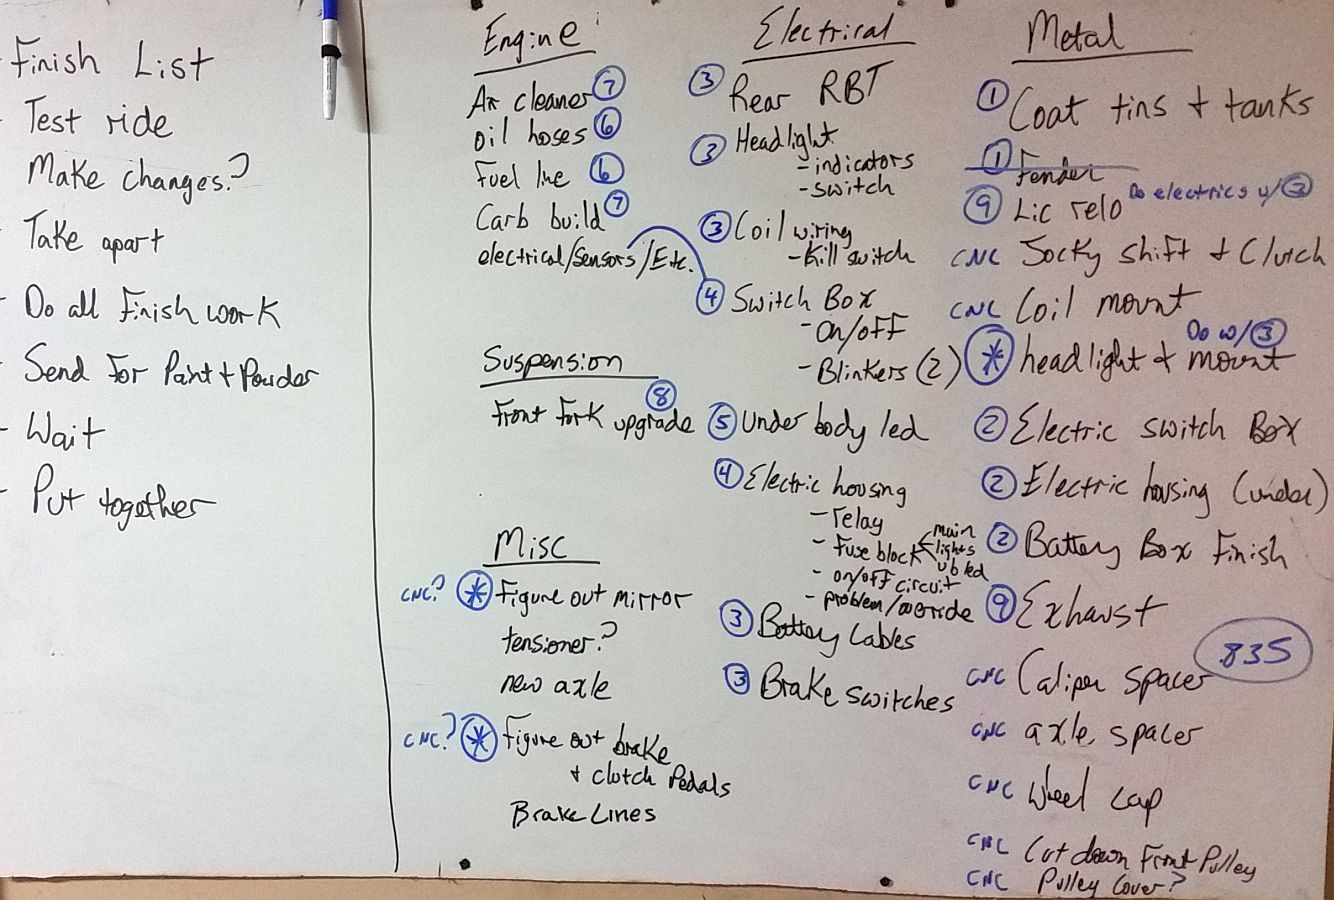 - Finish List
- Test ride
Make changes?
Take apart
- Do all Finish work
- Send For Paint + Powder
- Wait
- Put together
Engine
Air cleaner 7
oil hoses 6
Fuel line 6
Carb build 7
electrical/Sensors/Etc.
Suspension
8
Front Fork upgrade
Misc
CNC? * Figure out mirror
tensioner?
new axle
CNC? * Figure out brake
+ clutch Pedals
Brake Lines
Electrical
3 Rear RBT
3 Headlight
- indicators
- switch
3 Coil wiring
- Kill switch
4 Switch Box
- On/off
- Blinkers (2)
5 Under body led
4 Electric housing
- relay
- Fuse block < main
lights
ub led
- on/off circuit
- problem/override
3 Battery Cables
3 Brake switches
Metal
1 Coat tins + tanks
1 Fender
9 Lic relo Do electrics w/ 3
CNC Jocky shift + Clutch
CNC Coil mount
Do w/ 3
* headlight + mount
2 Electric switch Box
2 Electric housing (under)
2 Battery Box Finish
9 Exhaust
.835
CNC Caliper Spacer
CNC axle spacer
CNC Wheel cap
CNC Cut down Front Pulley
CNC Pulley Cover?